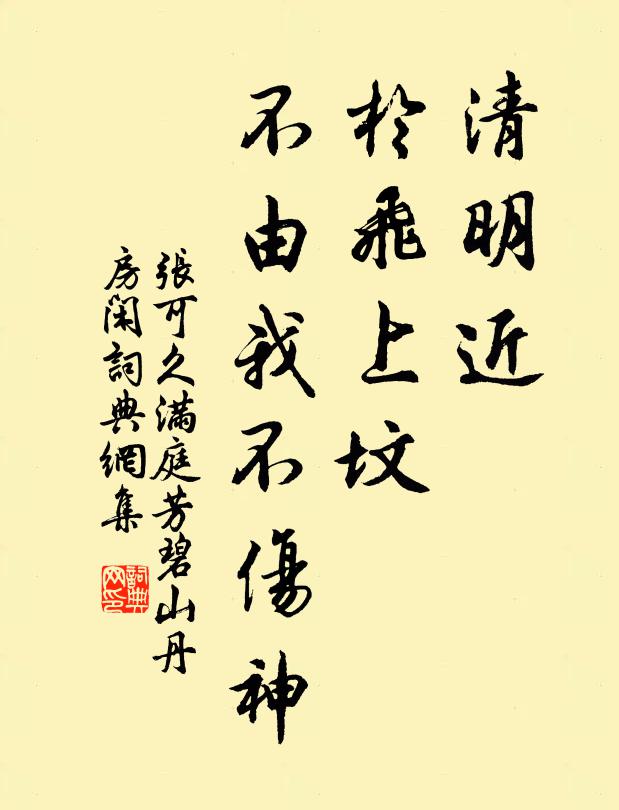 清明近
於飛上墳
不由我不傷神
張可久滿庭芳碧山丹
房閑詞典網集
詞典
网印